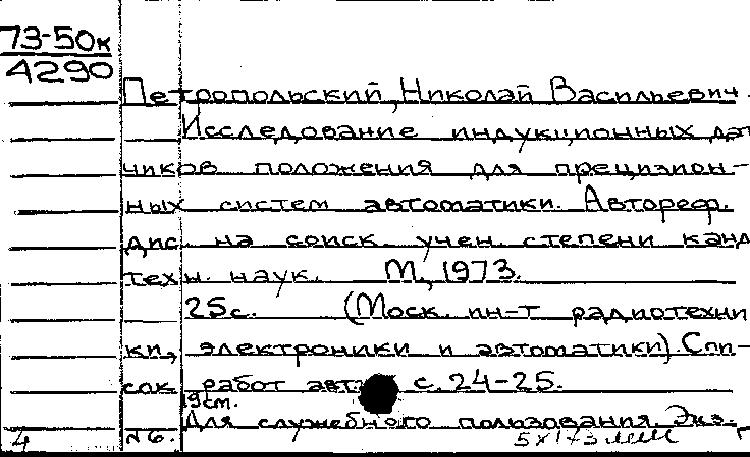 73-50к
4290
Петропольский, Николай Васильевич.
Исследование индукционных дат
чиков положения для прецизион-
ных систем автоматики. Автореф.
дис. на соиск. учен. степени канд
техн. наук. М., 1973.
25с. (Моск. ин-т радиотехни
ки, электроники и автоматики). Спи-
сок работ авт. с. 24-25.
19см.
Для служебного пользования. Экз.
4 №6.